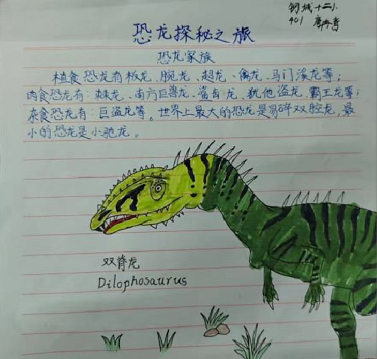 钢城十二小
401
恐龙探秘之旅
恐龙家族
植食恐龙有板龙、腕龙、超龙、禽龙、马门溪龙等;
肉食恐龙有:棘龙、南方巨兽龙、鲨齿龙、犹他盗龙、霸王龙等;
杂食恐龙有:巨盗龙等。世界上最大的恐龙是易碎双腔龙,最
小的恐龙是小驰龙。
双脊龙
Dilophosaurus